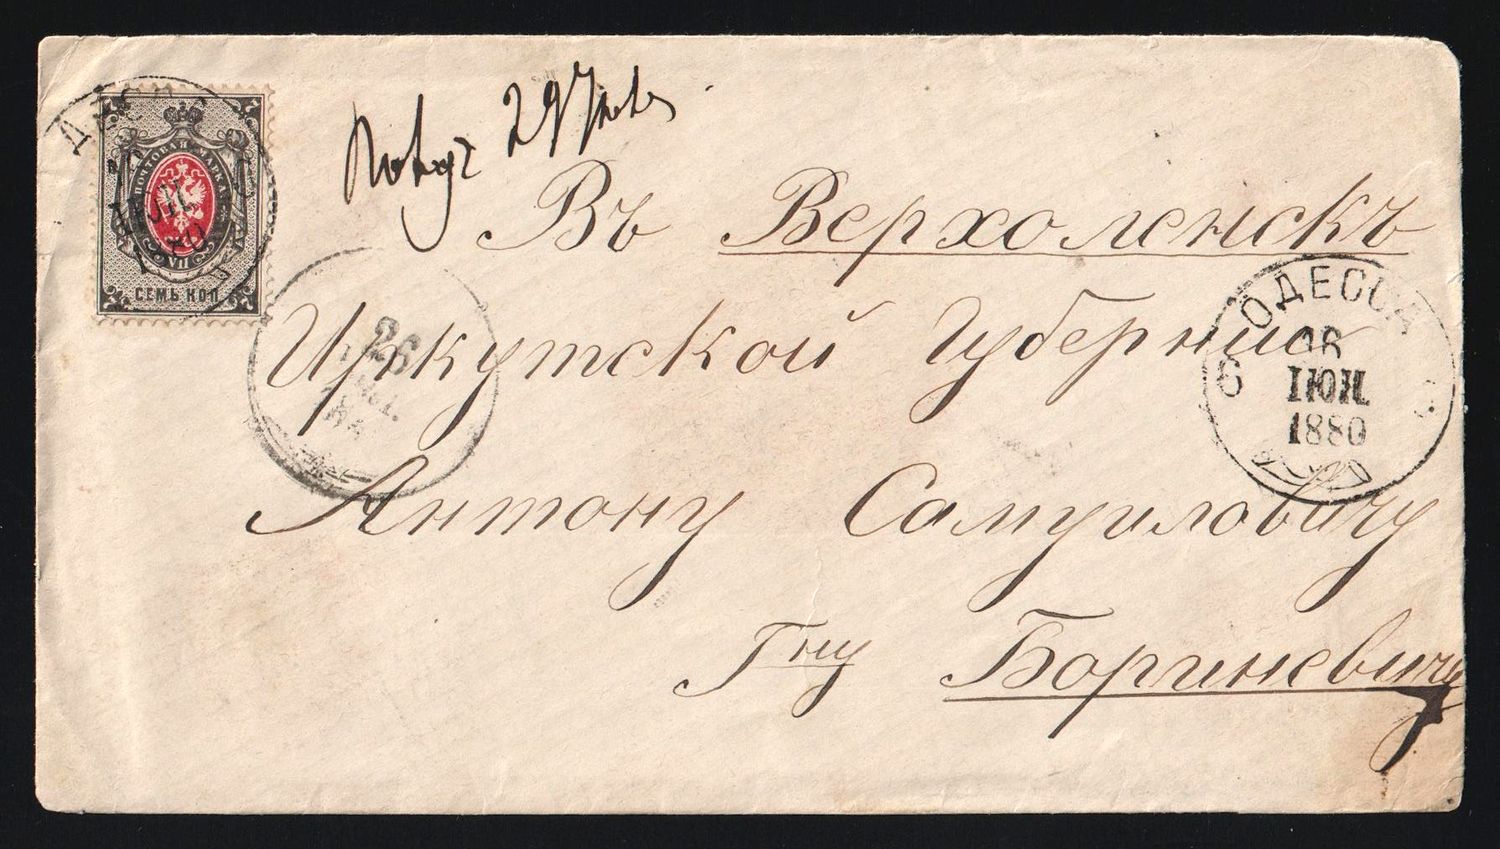 ПОЧТОВАЯ МАРКА
СЕМЬ КОП.
Получ 29 Іюля
Въ Верхоленскъ
Иркутской Губернии
Антону Самуиловичу
Гну Бориневичу
ОДЕССА
6
16
ІЮН.
1880
26